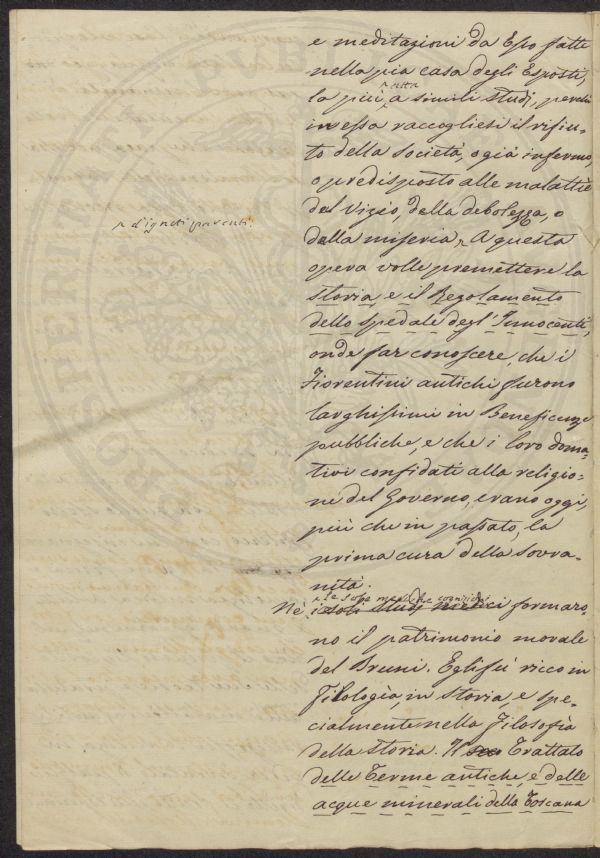 e meditazioni da Esso fatte
nella pia casa degli Esposti,
^ atta
la più ^ a simili studj, perchè
in essa raccogliesi il rifiu-
to della Società, o già infermo,
o predisposto alle malattie
del vizio, della debolezza, o
^ d'ignoti parenti.
della miseria ^. A questa
opera volle premettere la
storia, e il Regolamento
dello spedale degl'Innocenti,
onde far conoscere, che i
Fiorentini antichi furono
larghissimi in Beneficenze
pubbliche, e che i loro dona-
tivi confidati alla religio-
ne del Governo, erano oggi,
più che in passato, la
prima cura della Sovra-
nità.
^ le sole mediche cognizioni
Nè i soli studj medici formaro-
no il patrimonio morale
del Bruni. Egli fu ricco in
Filologia, in storia, e spe-
cialmente nella Filosofia
della storia. Il suo Trattato
delle Terme antiche, e delle
acque minerali della Toscana
PROSPERITATI PUBL